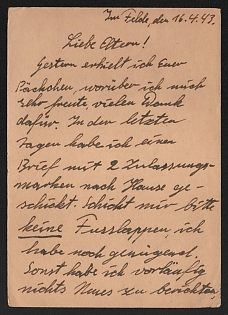 Im Felde, den 16.4.43.
Liebe Eltern!
Gestern erhielt ich Euer
Päckchen, worüber ich mich
sehr freute vielen Dank
dafür. In den letzten
Tagen habe ich einen
Brief mit 2 Zulassungs-
marken nach Hause ge-
schickt. Schickt mir bitte
keine Fusslappen, ich
habe noch genügend.
Sonst habe ich vorläufig
nichts Neues zu berichten,